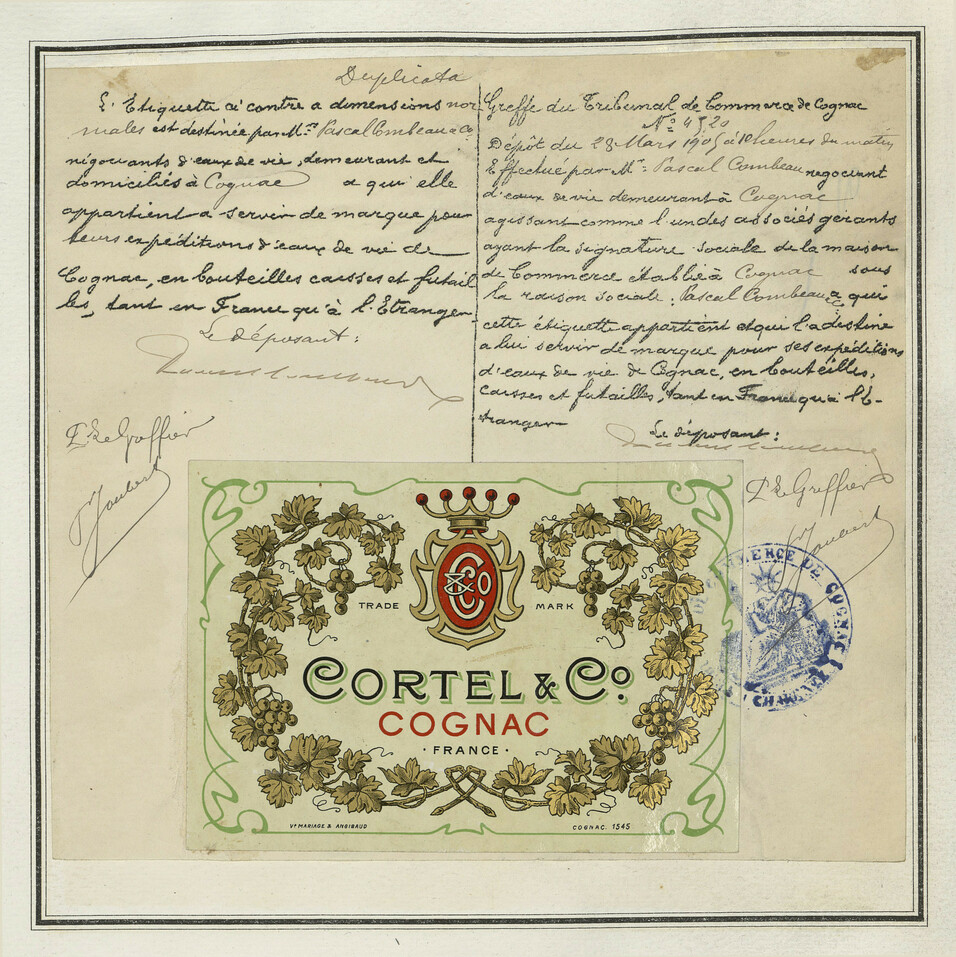 Duplicata
L'Etiquette ci contre a dimensions nor
males est destinée par Mrs Pascal Combeau & Co
négociants d'eaux de vie, demeurant et
domiciliés à Cognac a qui elle
appartient a servir de marque pour
leurs expéditions d'eaux de vie de
Cognac, en bouteilles caisses et futail
les, tant en France qu'à l'Etranger
Le déposant:
P. Le Greffier
Joubert
Greffe du Tribunal de Commerce de Cognac
No 4520
Dépôt du 28 Mars 1905 à 10 heures du matin
Effectué par Mr: Pascal Combeau negociant
d'eaux de vie demeurant à Cognac
agissant comme l'un des associés gerants
ayant la signature sociale de la maison
de Commerce établie à Cognac sous
la raison sociale: Pascal Combeau & Co a qui
cette étiquette appartient et qui l'a destine
a lui servir de marque pour ses expéditions
d'eaux de vie de Cognac, en bouteilles,
caisses et futailles, tant en France qu'à l'E-
tranger
Le déposant:
P. Le Greffier
Joubert
COMMERCE DE COGNAC
C & Co
TRADE MARK
CORTEL & Co
COGNAC
· FRANCE ·
Ve MARIAGE & ANGIBAUD
COGNAC. 1545